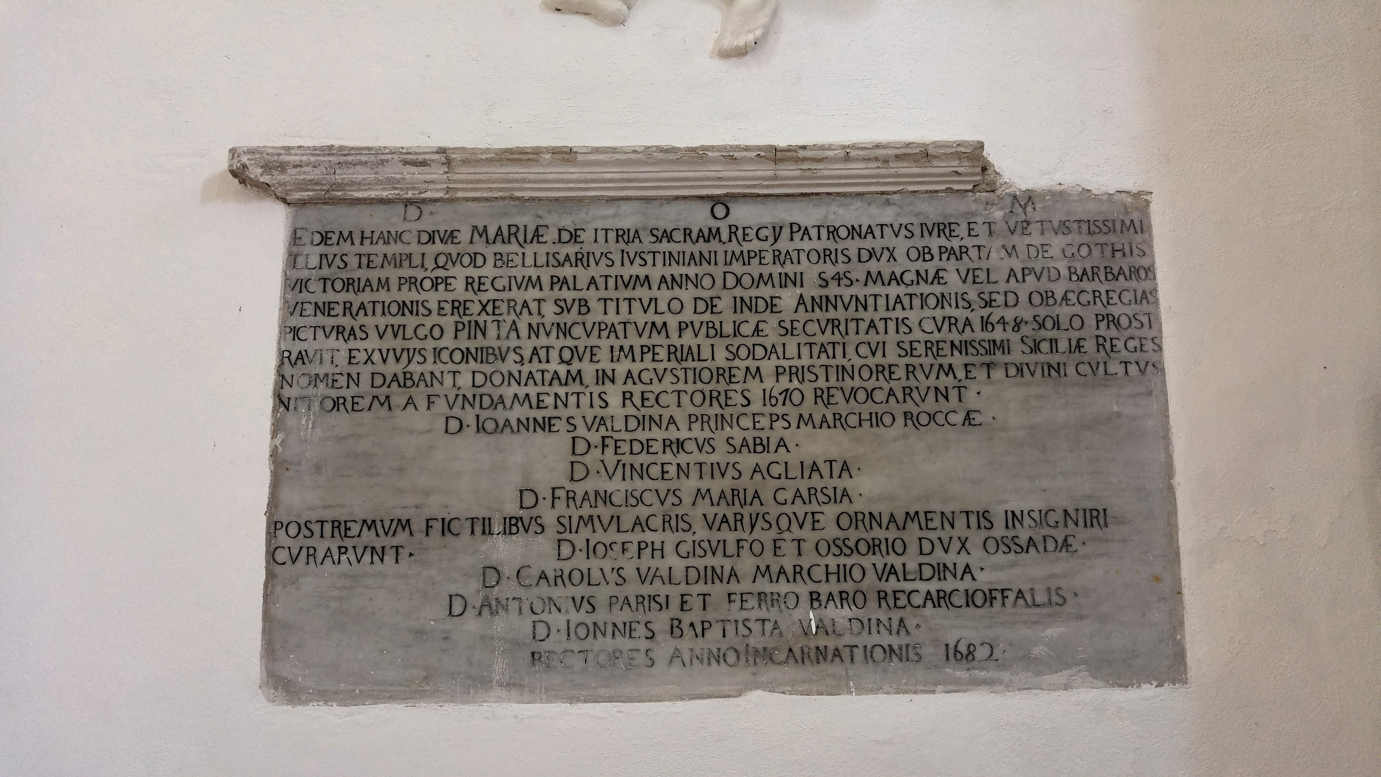 D O M
EDEM HANC DIVÆ MARIÆ DE ITRIA SACRAM, REGIJ PATRONATVS IVRE, ET VETVSTISSIMI
ILLIVS TEMPLI, QVOD BELLISARIVS IVSTINIANI IMPERATORIS DVX OB PARTAM DE GOTHIS
VICTORIAM PROPE REGIVM PALATIVM ANNO DOMINI 545· MAGNÆ VEL APVD BARBAROS
VENERATIONIS EREXERAT, SVB TITVLO DE INDE ANNVNTIATIONIS, SED OBÆGREGIAS
PICTVRAS VVLGO PINTA NVNCVPATVM PVBLICÆ SECVRITATIS CVRA 1648· SOLO PROST
RAVIT, EXVVIJS ICONIBVS, AT QVE IMPERIALI SODALITATI, CVI SERENISSIMI SICILIÆ REGES
NOMEN DABANT, DONATAM, IN AGVSTIOREM PRISTINO RERVM, ET DIVINI CVLTVS
NITOREM A FVNDAMENTIS RECTORES 1670 REVOCARVNT·
D·IOANNES VALDINA PRINCEPS MARCHIO ROCCÆ·
D·FEDERICVS SABIA·
D·VINCENTIVS AGLIATA·
D·FRANCISCVS MARIA GARSIA·
POSTREMVM FICTILIBVS SIMVLACRIS, VARIJSQVE ORNAMENTIS INSIGNIRI
CVRARVNT· D·IOSEPH GISVLFO ET OSSORIO DVX OSSADÆ·
D·CAROLVS VALDINA MARCHIO VALDINA·
D·ANTONIVS PARISI ET FERRO BARO RECARCIOFFALIS·
D·IONNES BAPTISTA VALDINA·
RECTORES ANNO INCARNATIONIS 1682·